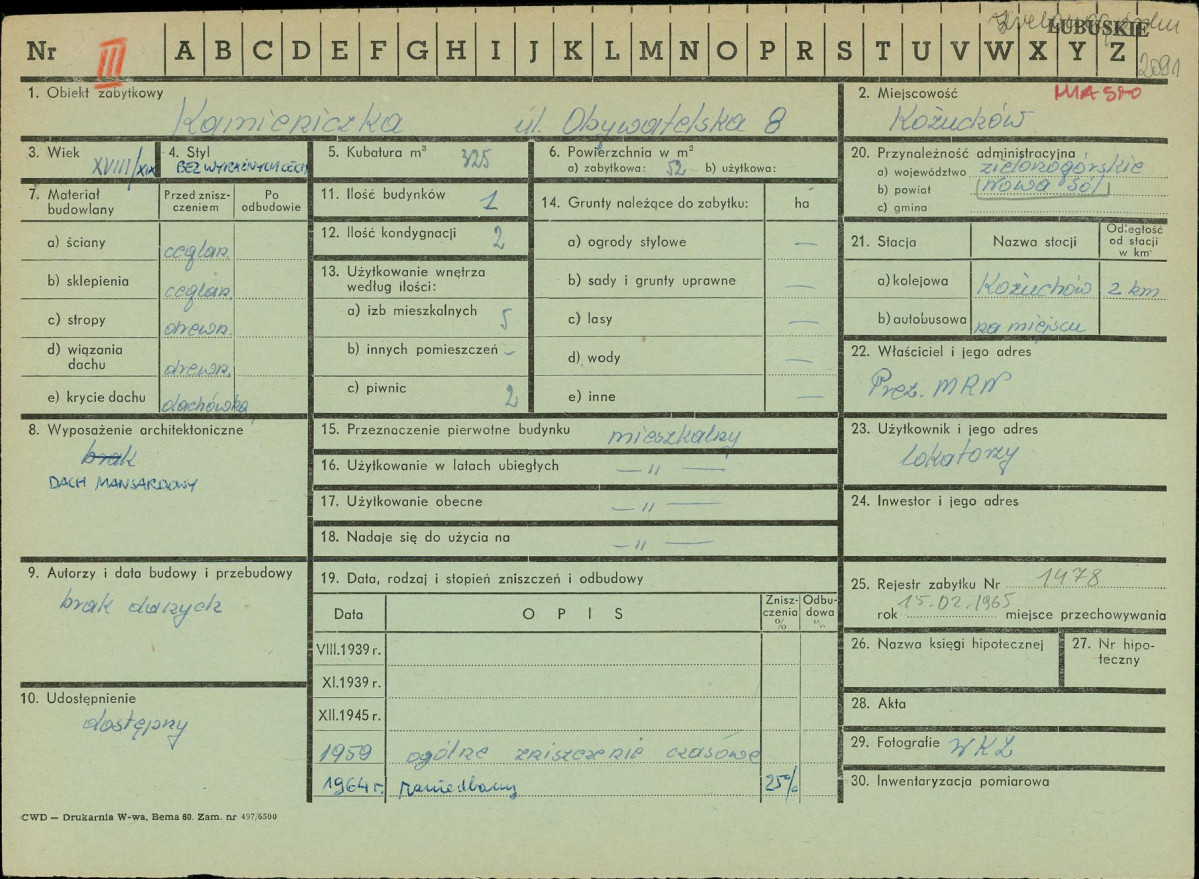 Nr III A B C D E F G H I J K L M N O P R S T U V W X Y Z LUBUSKIE
2091
1. Obiekt zabytkowy
Kamieniczka ul. Obywatelska 8
2. Miejscowość MIASTO
Kożuchów
3. Wiek XVIII/XIX
4. Styl
5. Kubatura m³ 325
6. Powierzchnia w m²
a) zabytkowa: 52 b) użytkowa:
20. Przynależność administracyjna
a) województwo zielonogórskie
b) powiat (Nowa Sól)
c) gmina
7. Materiał budowlany
Przed znisz-czeniem
Po odbudowie
a) ściany ceglan.
b) sklepienia ceglan.
c) stropy drewn.
d) wiązania dachu drewn.
e) krycie dachu dachówka
11. Ilość budynków 1
12. Ilość kondygnacji 2
13. Użytkowanie wnętrza
według ilości:
a) izb mieszkalnych 5
b) innych pomieszczeń –
c) piwnic 2
14. Grunty należące do zabytku: ha
a) ogrody stylowe —
b) sady i grunty uprawne —
c) lasy —
d) wody —
e) inne —
21. Stacja Nazwa stacji
Odległość
od stacji
w km
a) kolejowa Kożuchów 2 km
b) autobusowa na miejscu
22. Właściciel i jego adres
Prez. MRN
8. Wyposażenie architektoniczne
brak
DACH MANSARDOWY
15. Przeznaczenie pierwotne budynku mieszkalny
16. Użytkowanie w latach ubiegłych — " —
17. Użytkowanie obecne — " —
18. Nadaje się do użycia na — " —
23. Użytkownik i jego adres
lokatorzy
24. Inwestor i jego adres
9. Autorzy i data budowy i przebudowy
brak danych
10. Udostępnienie
dostępny
19. Data, rodzaj i stopień zniszczeń i odbudowy
Data OPIS
Znisz-
czenia
%
Odbu-
dowa
%
VIII.1939 r.
XI.1939 r.
XII.1945 r.
1959 ogólne zniszczenie czasowe
1964 r. zaniedbany 25%
25. Rejestr zabytku Nr 1478
rok 15.02.1965 miejsce przechowywania
26. Nazwa księgi hipotecznej
27. Nr hipo-
teczny
28. Akta
29. Fotografie WKZ
30. Inwentaryzacja pomiarowa
CWD — Drukarnia W-wa, Bema 60. Zam. nr 497/6500